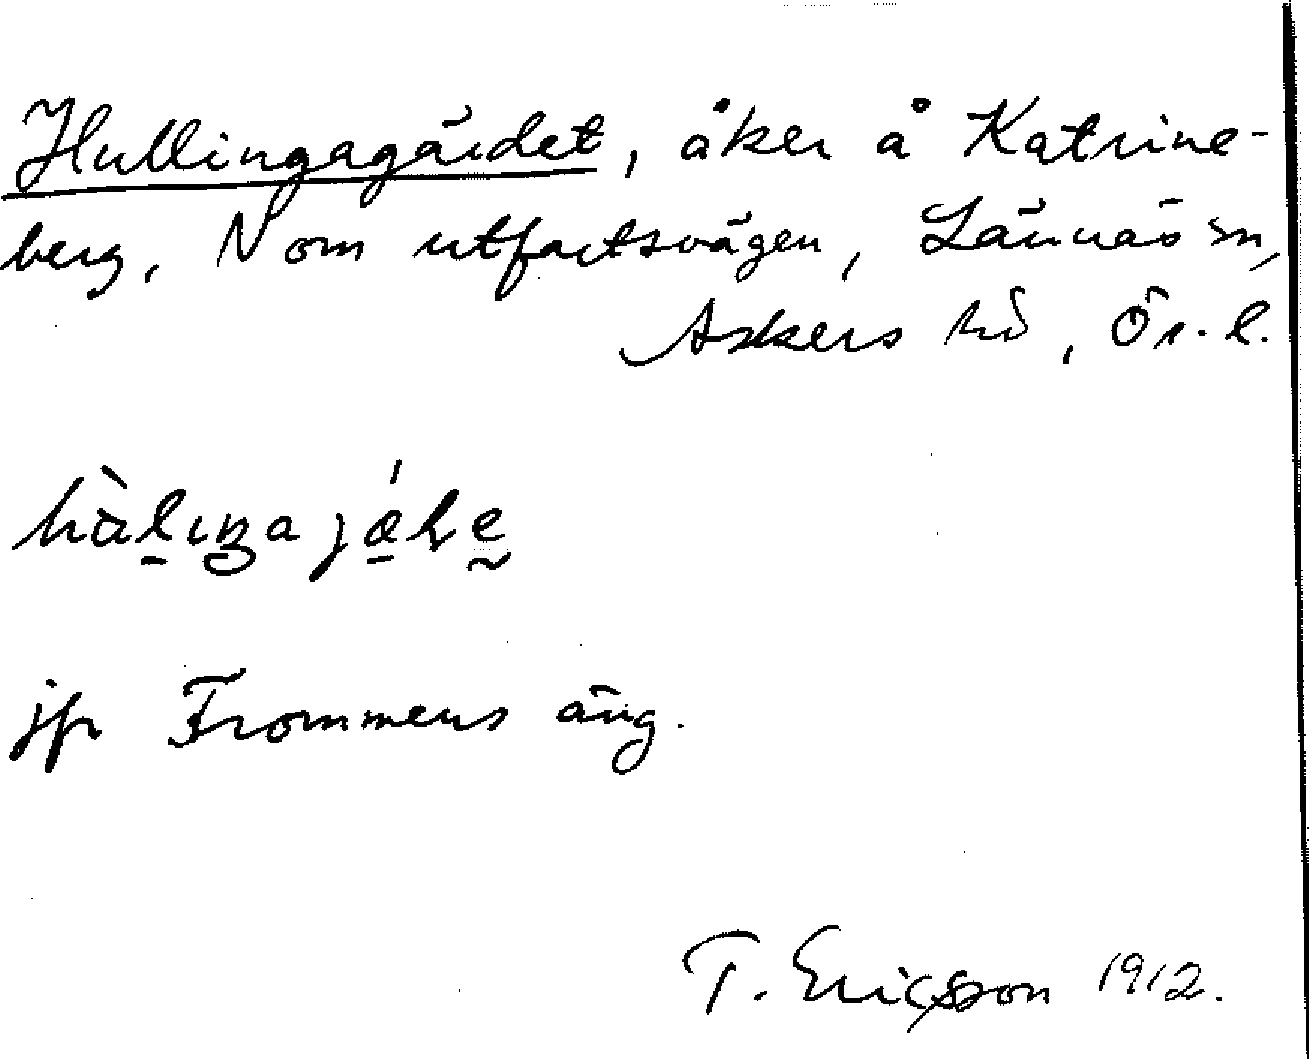 Hullingagärdet, åker å Katrine-
berg, N om utfartsvägen, Lännäs sn,
Askers hd, Ör. l.
jfr Frommens äng.
T. Ericsson 1912.